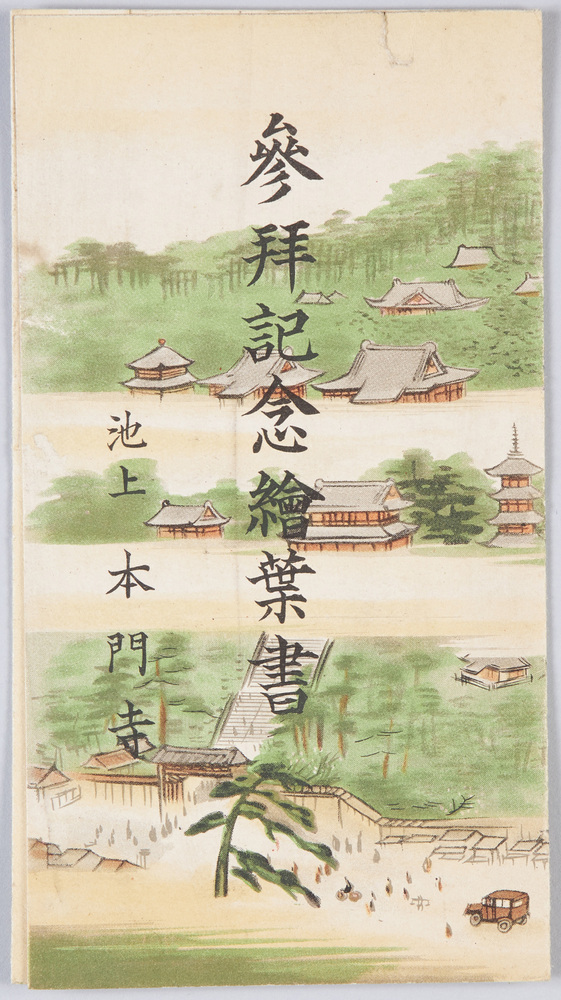 參拜記念繪葉書
池上 本門寺